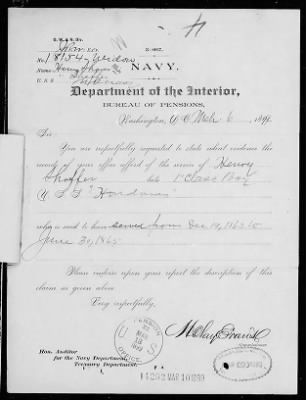 NAVY.
No. 18154 Widow
Name Henry
U.S.S.
Department of the Interior,
BUREAU OF PENSIONS,
Washington, D.C. Mch 6, 189
Sir:
You are respectfully requested to state what evidence the
records of your office afford of the service of Henry
Shofler late 1" Class Boy
U.S.S.
who is said to have served from Dec 19, 1863 to
June 30, 1865
Please indorse upon your report the description of this
claim as given above.
Very respectfully,
H Clay Evans
PENSION OFFICE
U S
MAR
Hon. Auditor
for the Navy Department,
Treasury Department.
MAR 10 1899